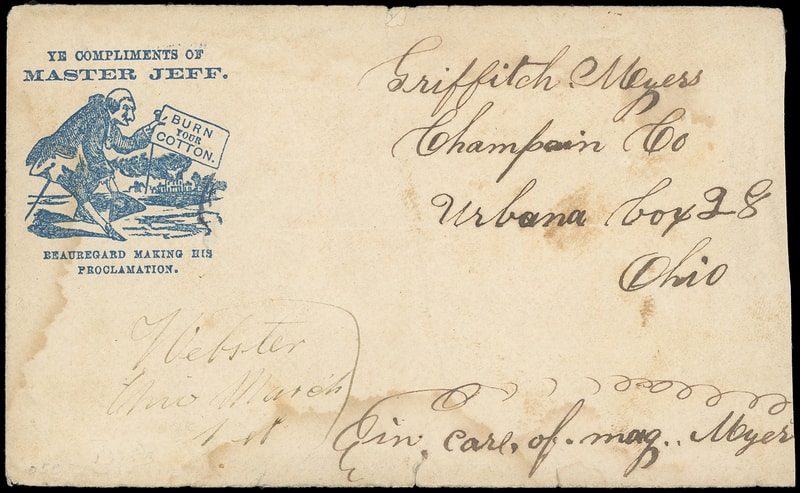 YE COMPLIMENTS OF
MASTER JEFF.
BURN
YOUR
COTTON.
BEAUREGARD MAKING HIS
PROCLAMATION.
Griffitch Myers
Champain Co
Urbana box 28
Ohio
Webster
Ohio March
in care of mag. Myer